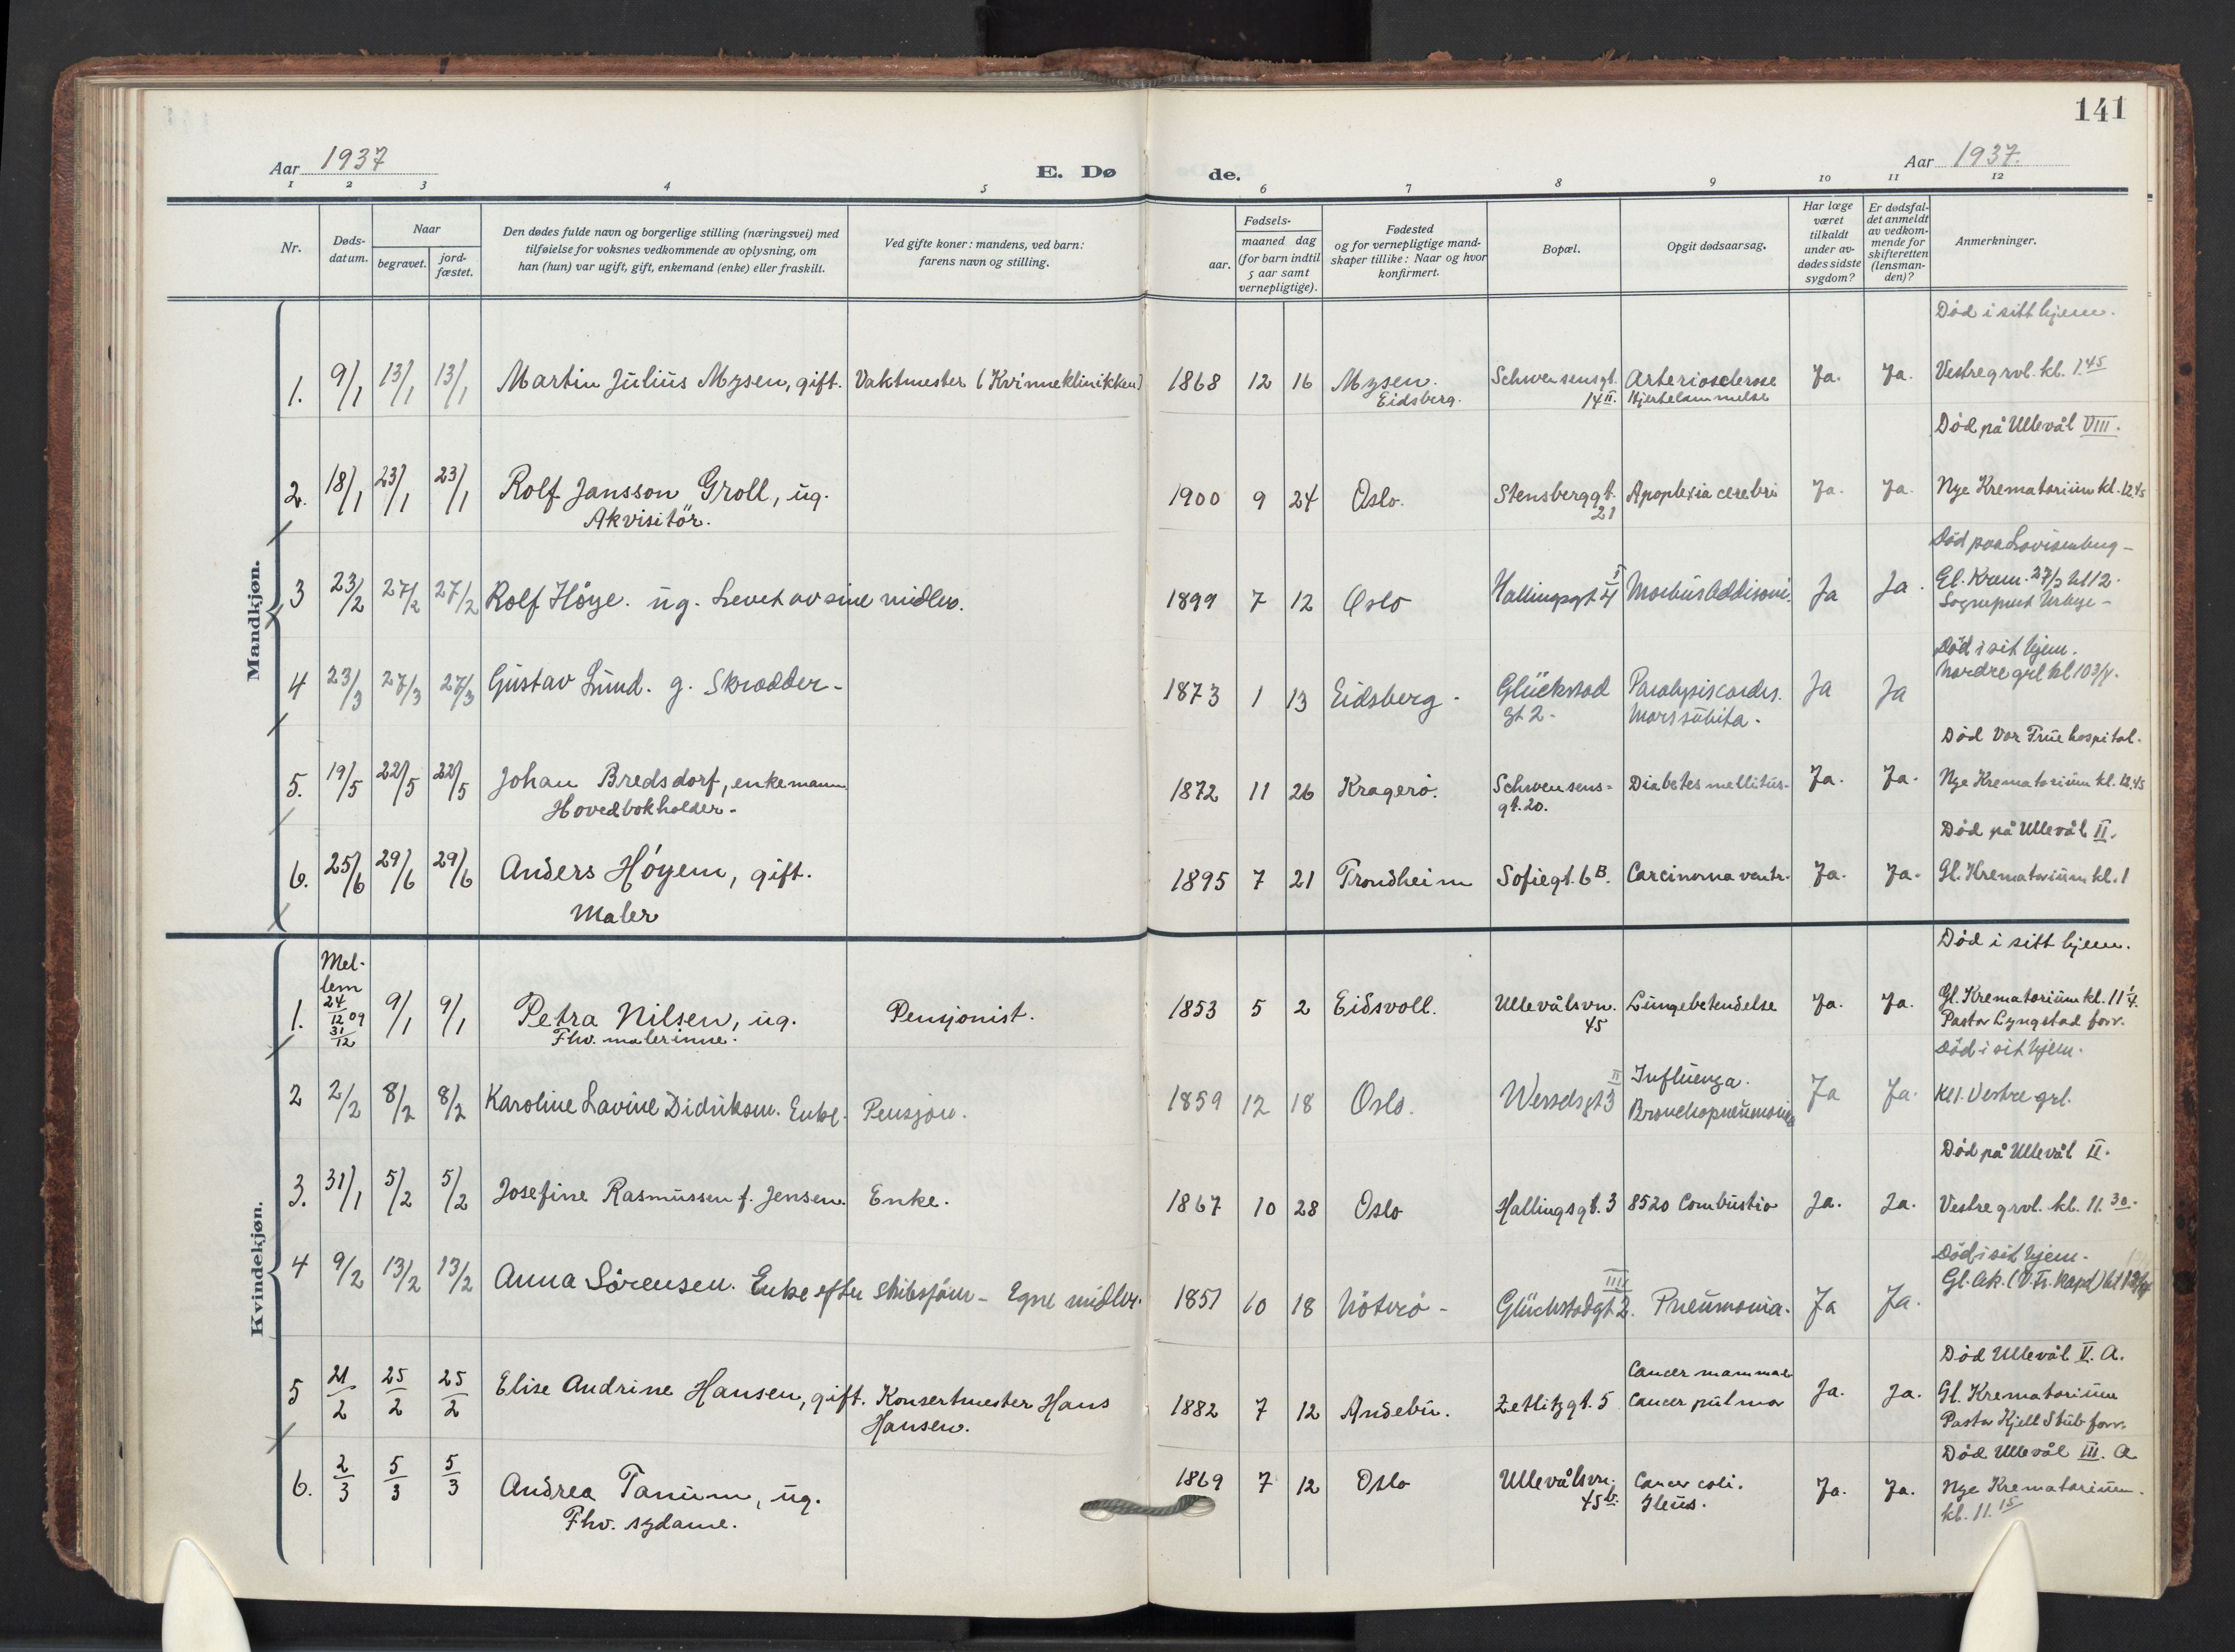 141
Aar 1937 E. Dø de. Aar 1937.
1 2 3 4 5 6 7 8 9 10 11 12
Nr.
Døds-
datum.
Naar
begravet.
jord-
fæstet.
Den dødes fulde navn og borgerlige stilling (næringsvei) med
tilføielse for voksnes vedkommende av oplysning, om
han (hun) var ugift, gift, enkemand (enke) eller fraskilt.
Ved gifte koner: mandens, ved barn:
farens navn og stilling.
Fødsels-
aar.
maaned dag
(for barn indtil
5 aar samt
vernepligtige).
Fødested
og for vernepligtige mand-
skaper tillike: Naar og hvor
konfirmert.
Bopæl.
Opgit dødsaarsag.
Har læge
været
tilkaldt
under av-
dødes sidste
sygdom?
Er dødsfal-
det anmeldt
av vedkom-
mende for
skifteretten
(lensman-
den)?
Anmerkninger.
Mandkjøn.
Død i sitt hjem.
1. 9/1 13/1 13/1 Martin Julius Mysen, gift. Vaktmester (Kvinneklinikken) 1868 12 16 Mysen. Schwensensgt. Arteriosclerose Ja. Ja. Vestre grvl. kl. 1.45
Eidsberg. 14 II. Hjertelammelse
Død på Ullevål VIII.
2. 18/1 23/1 23/1 Rolf Jansson Groll, ug. 1900 9 24 Oslo. Stensberggt. Apoplexia cerebri Ja. Ja. Nye Krematorium kl. 12.45
Akvisitör. 21
Død paa Lovisenberg -
3 23/2 27/2 27/2 Rolf Höye. ug. Levet av sine midler. 1899 7 12 Oslo Hallingsgt 4 I Morbus Addisoni. Ja Ja. Gl. Krem. 27/2 kl 12.
Sogneprest
Død i sit hjem.
4 23/3 27/3 27/3 Gustav Lund. g. Skrædder - 1873 1 13 Eidsberg - Glückstad Paralysis cordis. Ja Ja Nordre grl kl 10 3/4.
gt 2 - Mors subita -
Død Vor Frue hospital.
5. 19/5 22/5 22/5 Johan Bredsdorf, enkemann 1872 11 26 Kragerö. Schwensens- Diabetes mellitus- Ja. Ja. Nye Krematorium kl. 12.45
Hovedbokholder - gt. 20.
Død på Ullevål II.
6. 25/6 29/6 29/6 Anders Höyem, gift. 1895 7 21 Trondheim Sofiegt. 6 B. Carcinoma ventr. Ja. Ja. Gl. Krematorium kl. 1
Maler
Kvindekjøn.
Død i sitt hjem.
1. Mel-
lem
24/12 og
31/12
9/1 9/1 Petra Nilsen, ug. Pensjonist. 1853 5 2 Eidsvoll. Ullevålsvn. Lungebetendelse Ja. Ja. Gl. Krematorium kl. 11 1/4.
Fhv. malerinne. 45 Pastor Lyngstad forr.
Død i sit hjem.
2 2/2 8/2 8/2 Karoline Lavine Didriksen. Enke. Pensjon. 1859 12 18 Oslo. Wesselsgt 3 II Influenza. Ja Ja. Kl 1. Vestre grl.
Bronchopneumonia
Død på Ullevål II.
3. 31/1 5/2 5/2 Josefine Rasmussen f. Jensen. Enke. 1867 10 28 Oslo Hallingsgt. 3 8520 Combustio Ja. Ja. Vestre grvl. kl. 11.30.
Død i sit hjem.
4 9/2 13/2 13/2 Anna Sörensen. Enke efter skibsförer - Egne midler. 1851 10 18 Nöterö - Glückstadgt 2. III. Pneumonia. Ja Ja. Gl. Ak. (V. Fr. Kapel)
Død Ullevål V. A.
5 21/2 25/2 25/2 Elise Andrine Hansen, gift. Konsertmester Hans 1882 7 12 Andebu. Zetlitzgt. 5 Cancer mammae Ja. Ja. Gl. Krematorium
Hansen. Cancer pulmo Pastor Kjell Stub forr.
Død Ullevål III. A
6. 2/3 5/3 5/3 Andrea Tanum, ug. 1869 7 12 Oslo Ullevålsvn. Cancer coli. Ja. Ja. Nye Krematorium.
Fhv. sydame. 45 b. Ileus. kl. 11.15